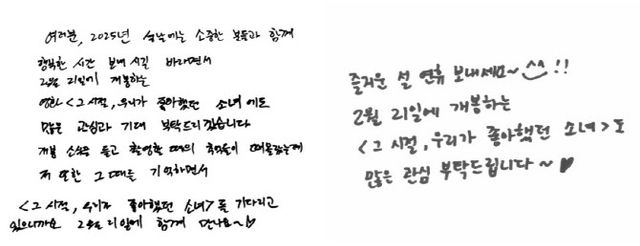 여러분, 2025년 설날에는 소중한 분들과 함께
행복한 시간 보내시길 바라면서
2월 21일에 개봉하는
영화 <그 시절, 우리가 좋아했던 소녀>에도
많은 관심과 기대 부탁드리겠습니다
개봉 소식을 듣고 촬영할 때의 추억들이 떠올랐는데
저 또한 그 때를 기억하면서
<그 시절, 우리가 좋아했던 소녀>를 기다리고
있으니까요 2월 21일에 함께 만나요~
즐거운 설 연휴 보내세요~ ^^ !!
2월 21일에 개봉하는
<그 시절, 우리가 좋아했던 소녀>도
많은 관심 부탁드립니다~ ♥